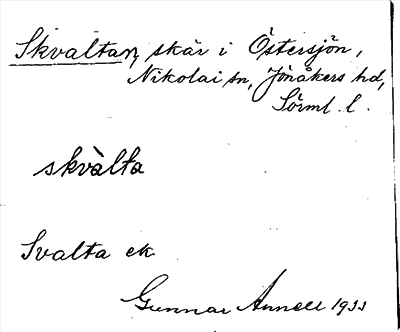 Skvaltan, skär i Östersjön,
Nikolai sn, Jönåkers hd,
Sörml. l.
skvàlta
Svalta ek
Gunnar Annell 1933